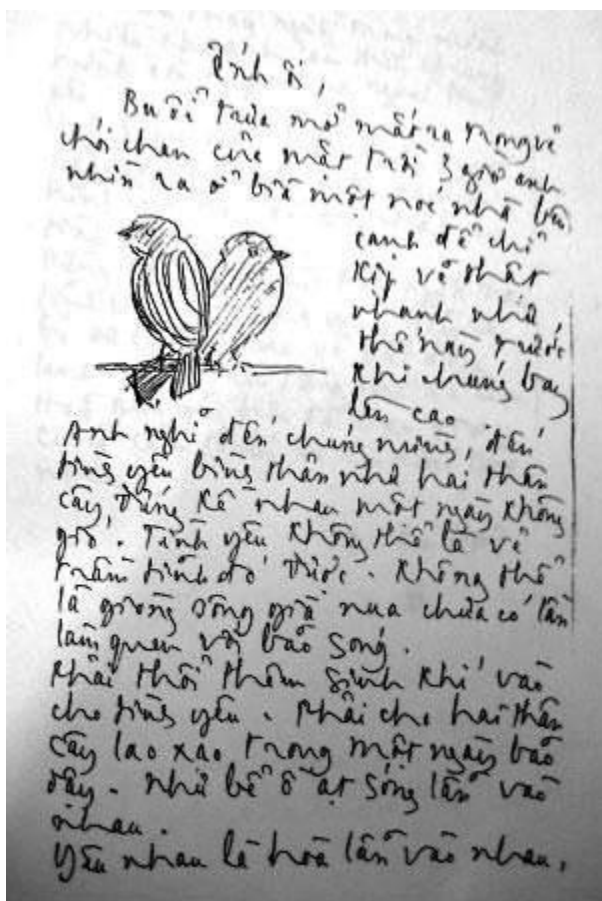 Ánh ơi,
Buổi trưa mở mắt ra trong vẻ
chói chan của mặt trời 3 giờ anh
nhìn ra ở bìa một mái nhà bên
cạnh để chỉ
kịp vẽ thật
nhanh như
thế này trước
khi chúng bay
lên cao.
Anh nghĩ đến chúng mình, đến
tình yêu bình thản như hai thân
cây, đứng kề nhau một ngày không
gió. Tình yêu không thể là vẻ
trầm tĩnh đó được. Không thể
là giòng sông già nua chưa có lần
làm quen với bão sóng.
Phải thổi thêm sinh khí vào
cho tình yêu. Phải cho hai thân
cây lao xao trong một ngày bão
dậy. Như bể ồ ạt sóng lẫn vào
nhau.
Yêu nhau là hoà lẫn vào nhau,